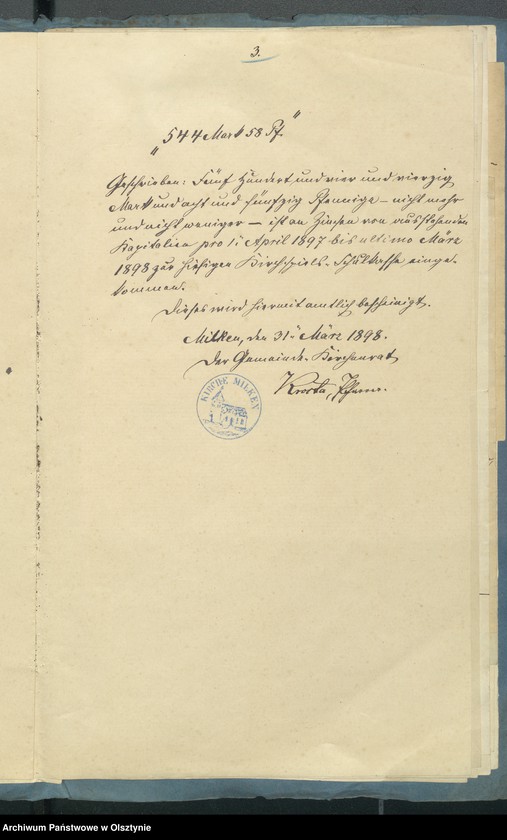 3.
"544 Mark 58 Pf."
Geschrieben: Fünf Hundert und vier und vierzig
Mark und acht und fünfzig Pfennige – nicht mehr
und nicht weniger – ist an Zinsen von ausstehenden
Kapitalien pro 1ten April 1897 bis ultimo März
1898 zur hiesigen Kirchspiels-Schulkasse einge-
kommen.
Dieses wird hiermit amtlich bescheinigt.
Milken, den 31ten März 1898.
Der Gemeinde-Kirchenrat
Krosta, Pfarrer.
KIRCHE MILKEN
Archiwum Państwowe w Olsztynie